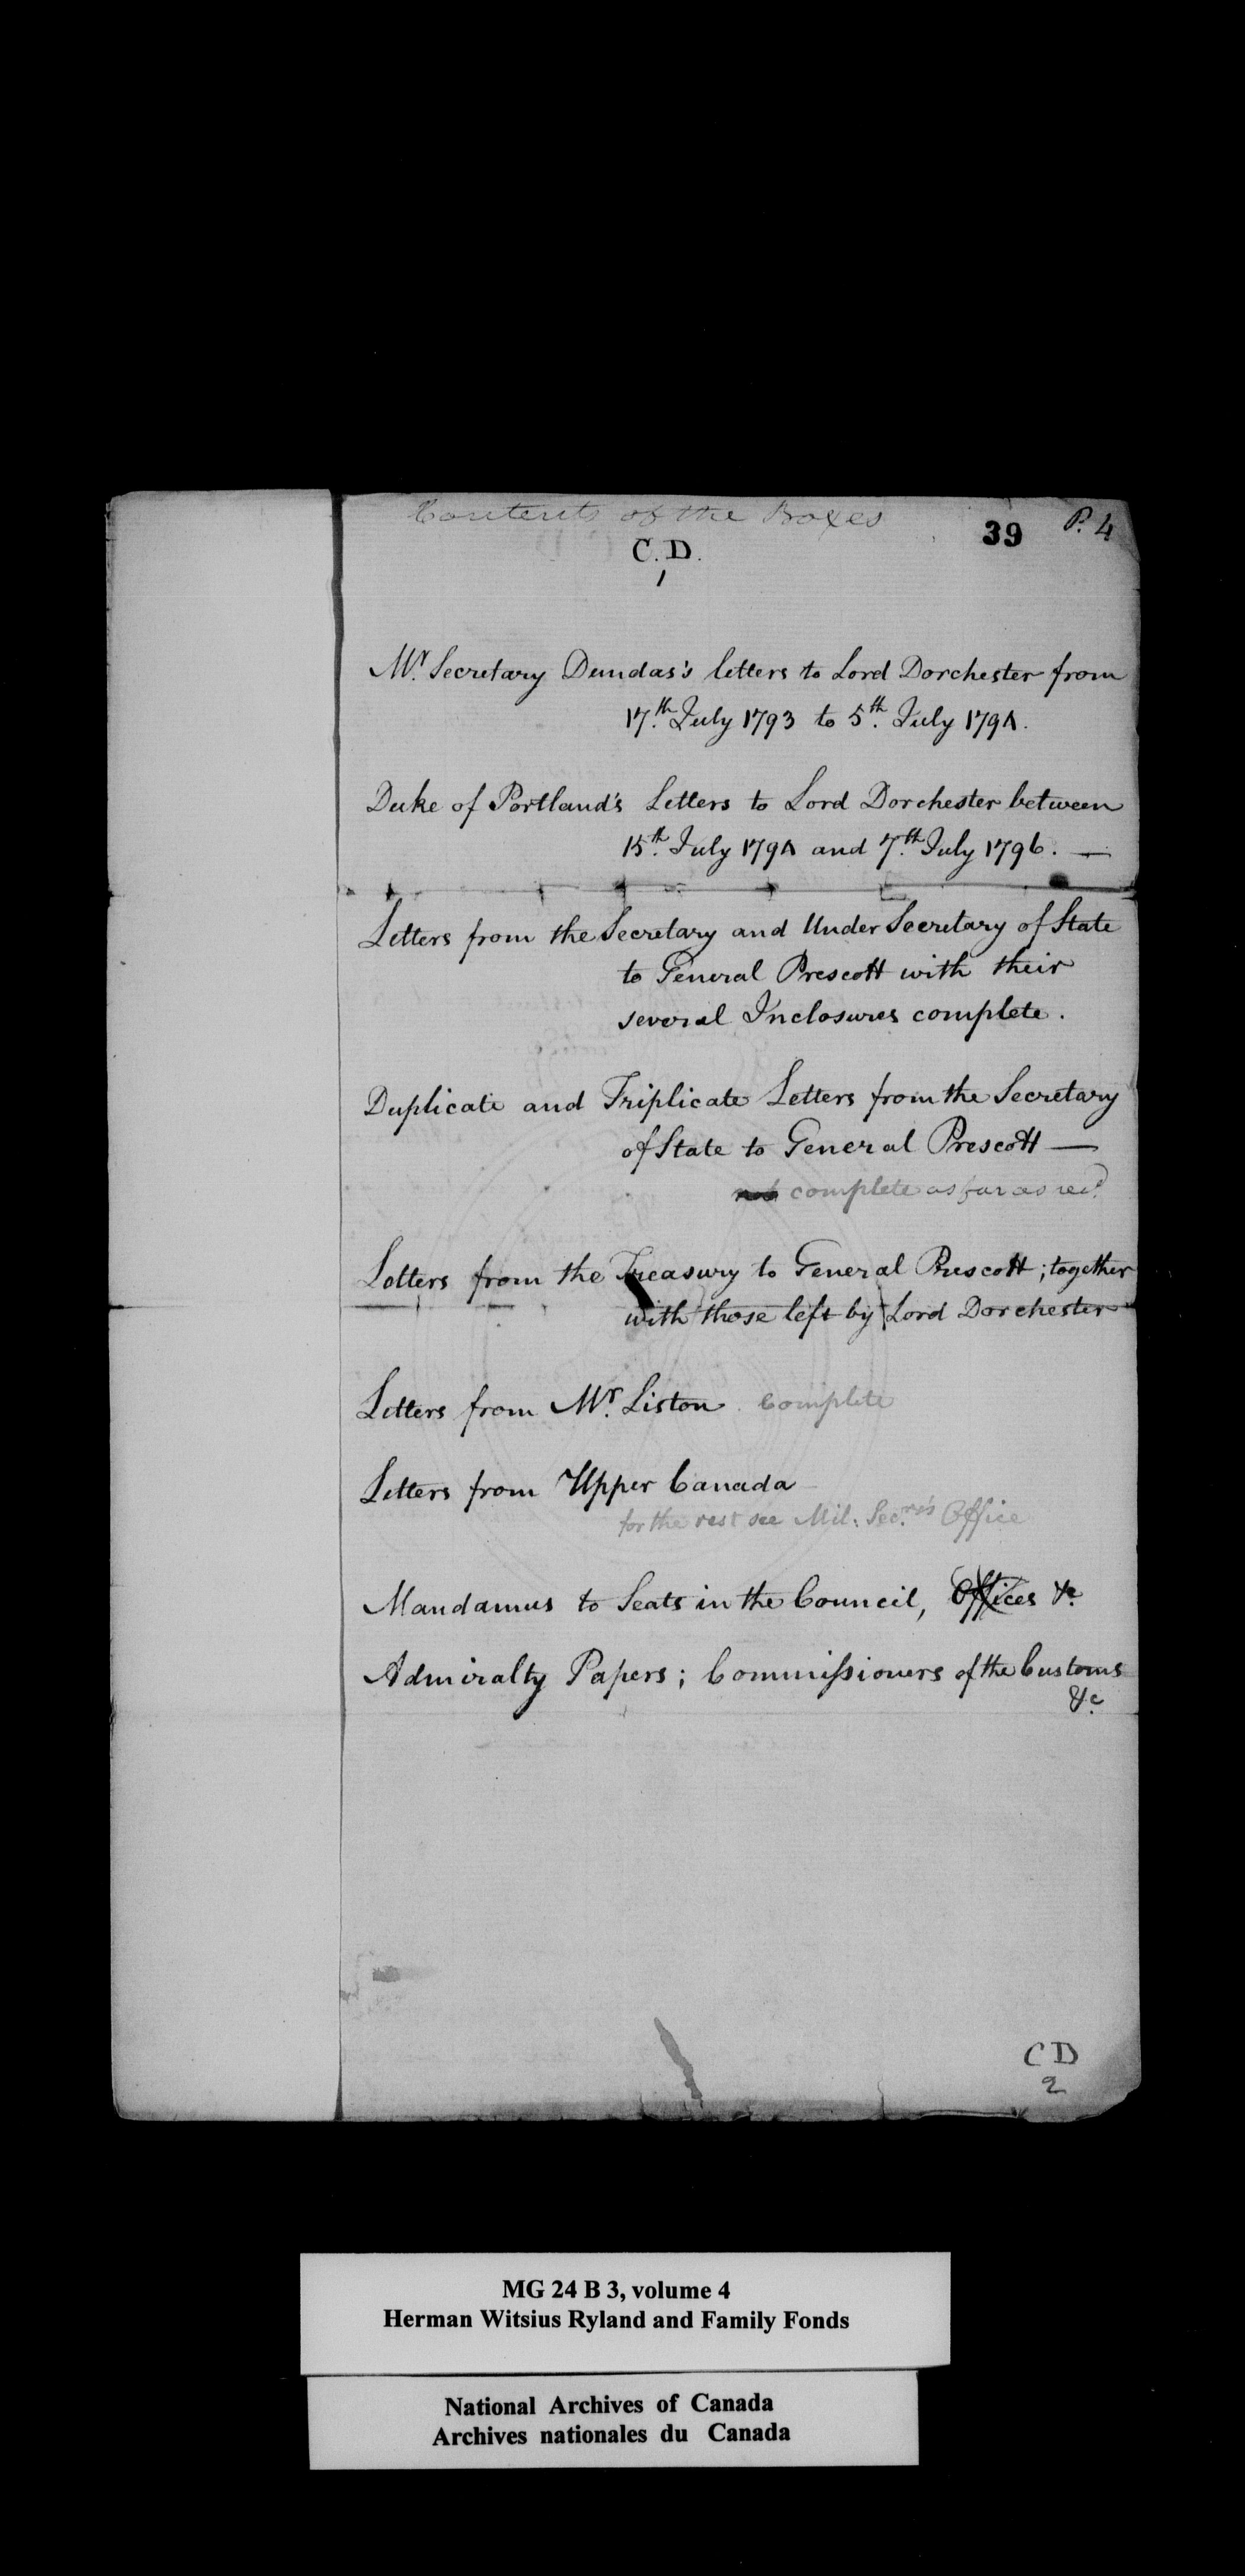 Contents of the Boxes
39 P. 4
C. D.
1
Mr. Secretary Dundas's letters to Lord Dorchester from
17th. July 1793 to 5th. July 1794.
Duke of Portland's Letters to Lord Dorchester between
15th. July 1794 and 7th. July 1796. —
Letters from the Secretary and Under Secretary of State
to General Prescott with their
several Inclosures complete.
Duplicate and Triplicate Letters from the Secretary
of State to General Prescott —
not complete as far as recd.
Letters from the Treasury to General Prescott; together
with those left by Lord Dorchester
Letters from Mr. Liston. Complete
Letters from Upper Canada
for the rest see Mil: Secry's Office
Mandamus to Seats in the Council, Offices &c.
Admiralty Papers; Commissioners of the Customs
&c.
C D
2
MG 24 B 3, volume 4
Herman Witsius Ryland and Family Fonds
National Archives of Canada
Archives nationales du Canada